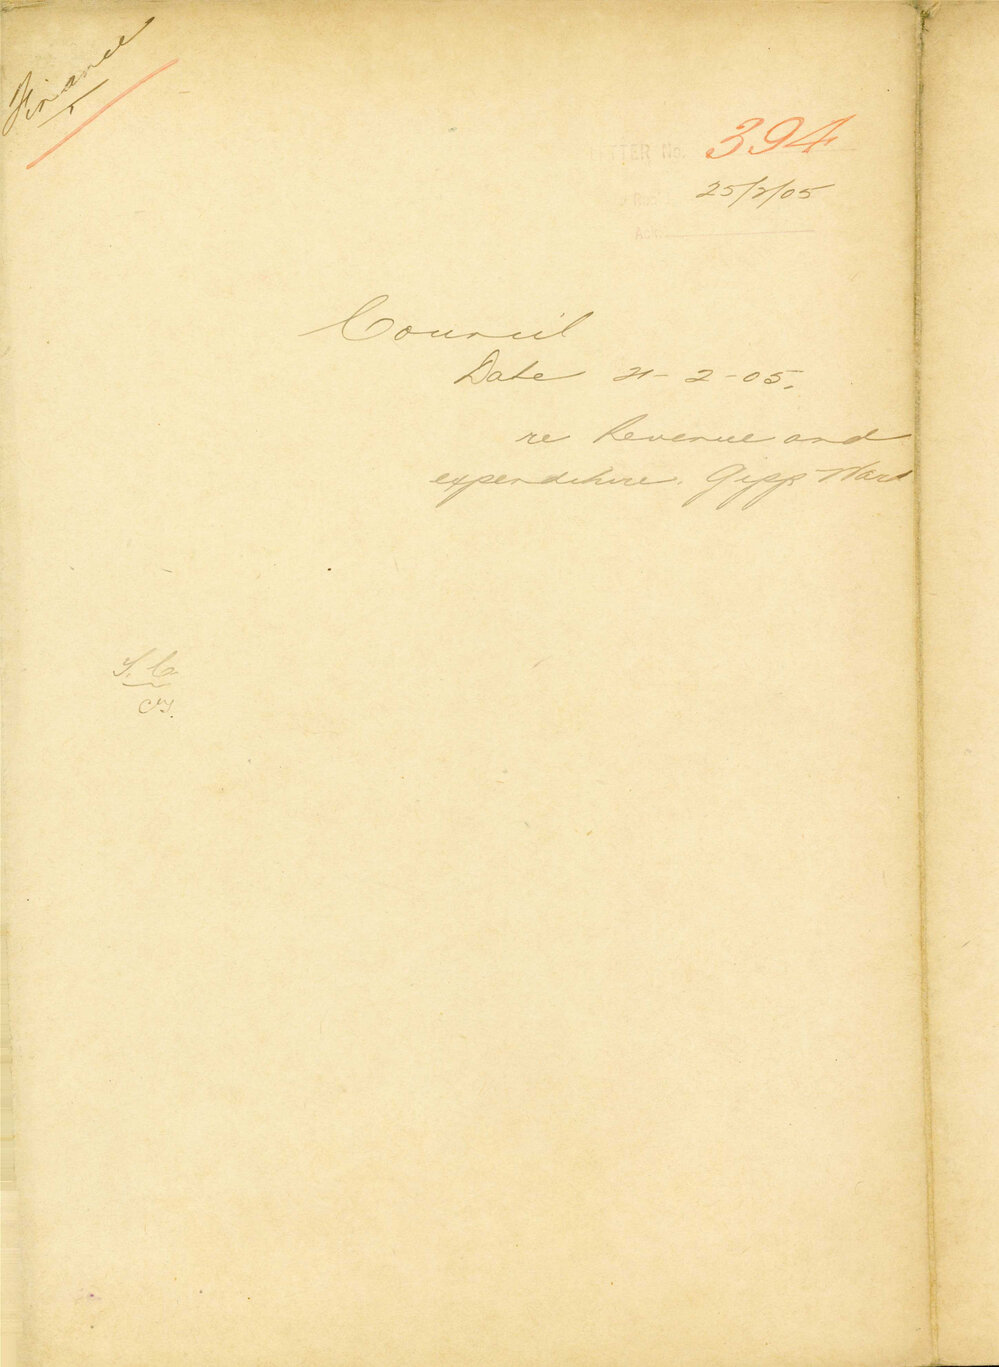 Finance
LETTER No. 394
25/2/05
Ack
Council
Date 21-2-05.
re Revenue and
expenditure. Gipps Ward